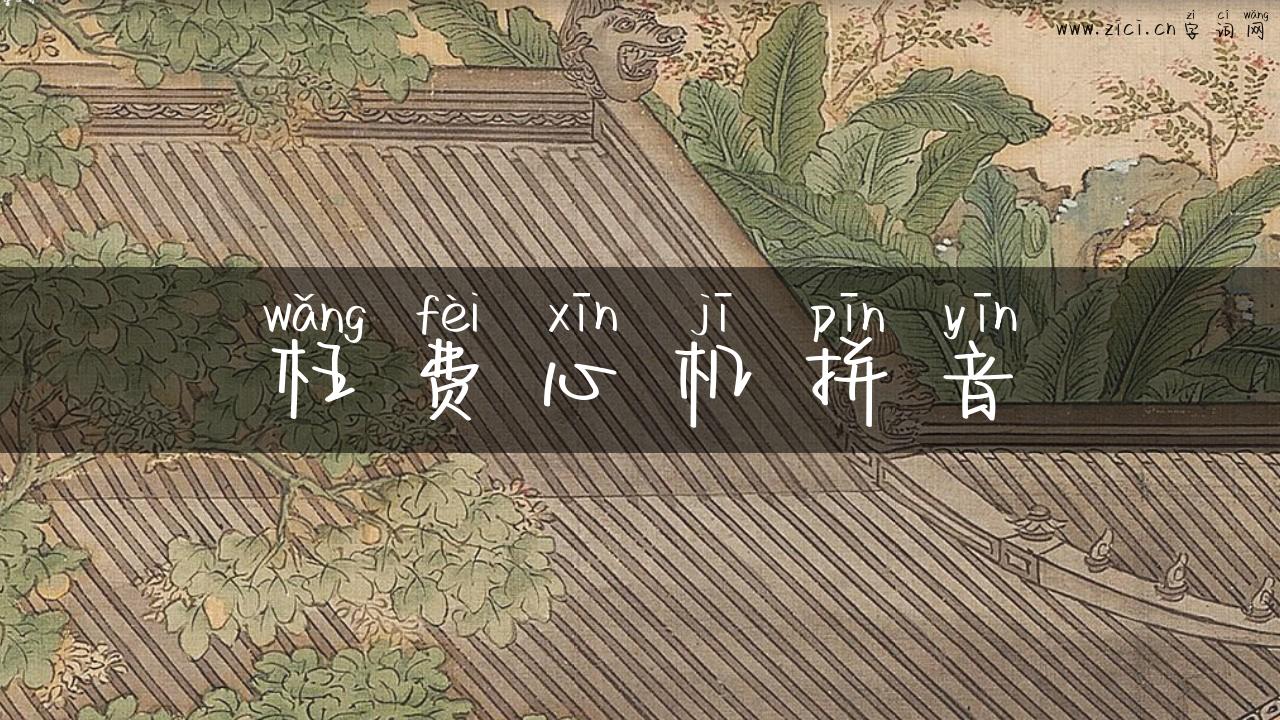 zì cí wǎng
www.zici.cn 字词网
wǎng fèi xīn jī pīn yīn
枉费心机拼音